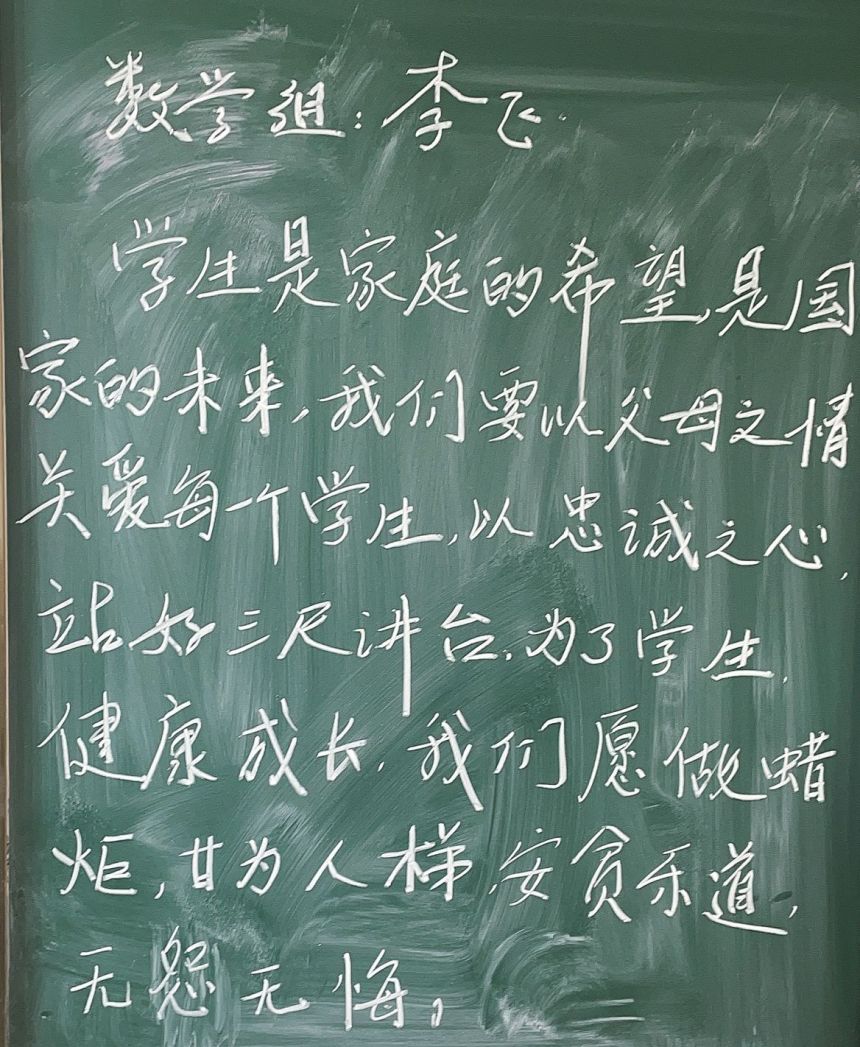 数学组：李飞
学生是家庭的希望，是国
家的未来，我们要以父母之情
关爱每个学生，以忠诚之心，
站好三尺讲台，为了学生，
健康成长，我们愿做蜡
炬，甘为人梯，安贫乐道，
无怨无悔。